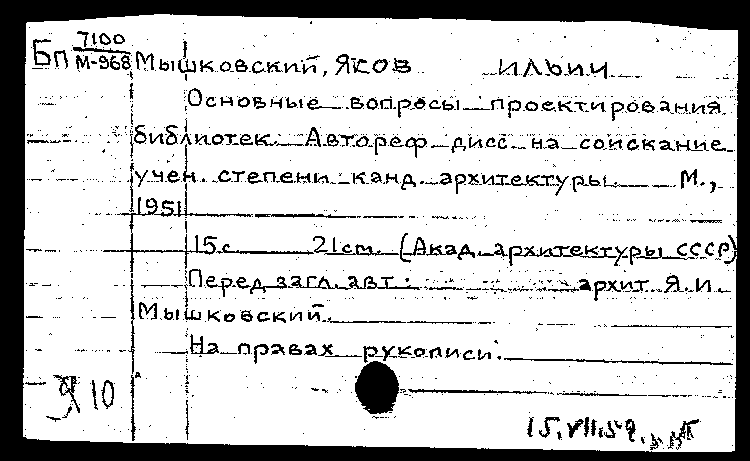 Бп 7100
М-968 Мышковский, Яков Ильич
Основные вопросы проектирования
библиотек. Автореф. дисс. на соискание
учен. степени канд. архитектуры. М.,
1951
15с. 21см. (Акад. архитектуры СССР)
Перед загл. авт.: архит. Я.И.
Мышковский.
На правах рукописи.
10
15.VII.59.